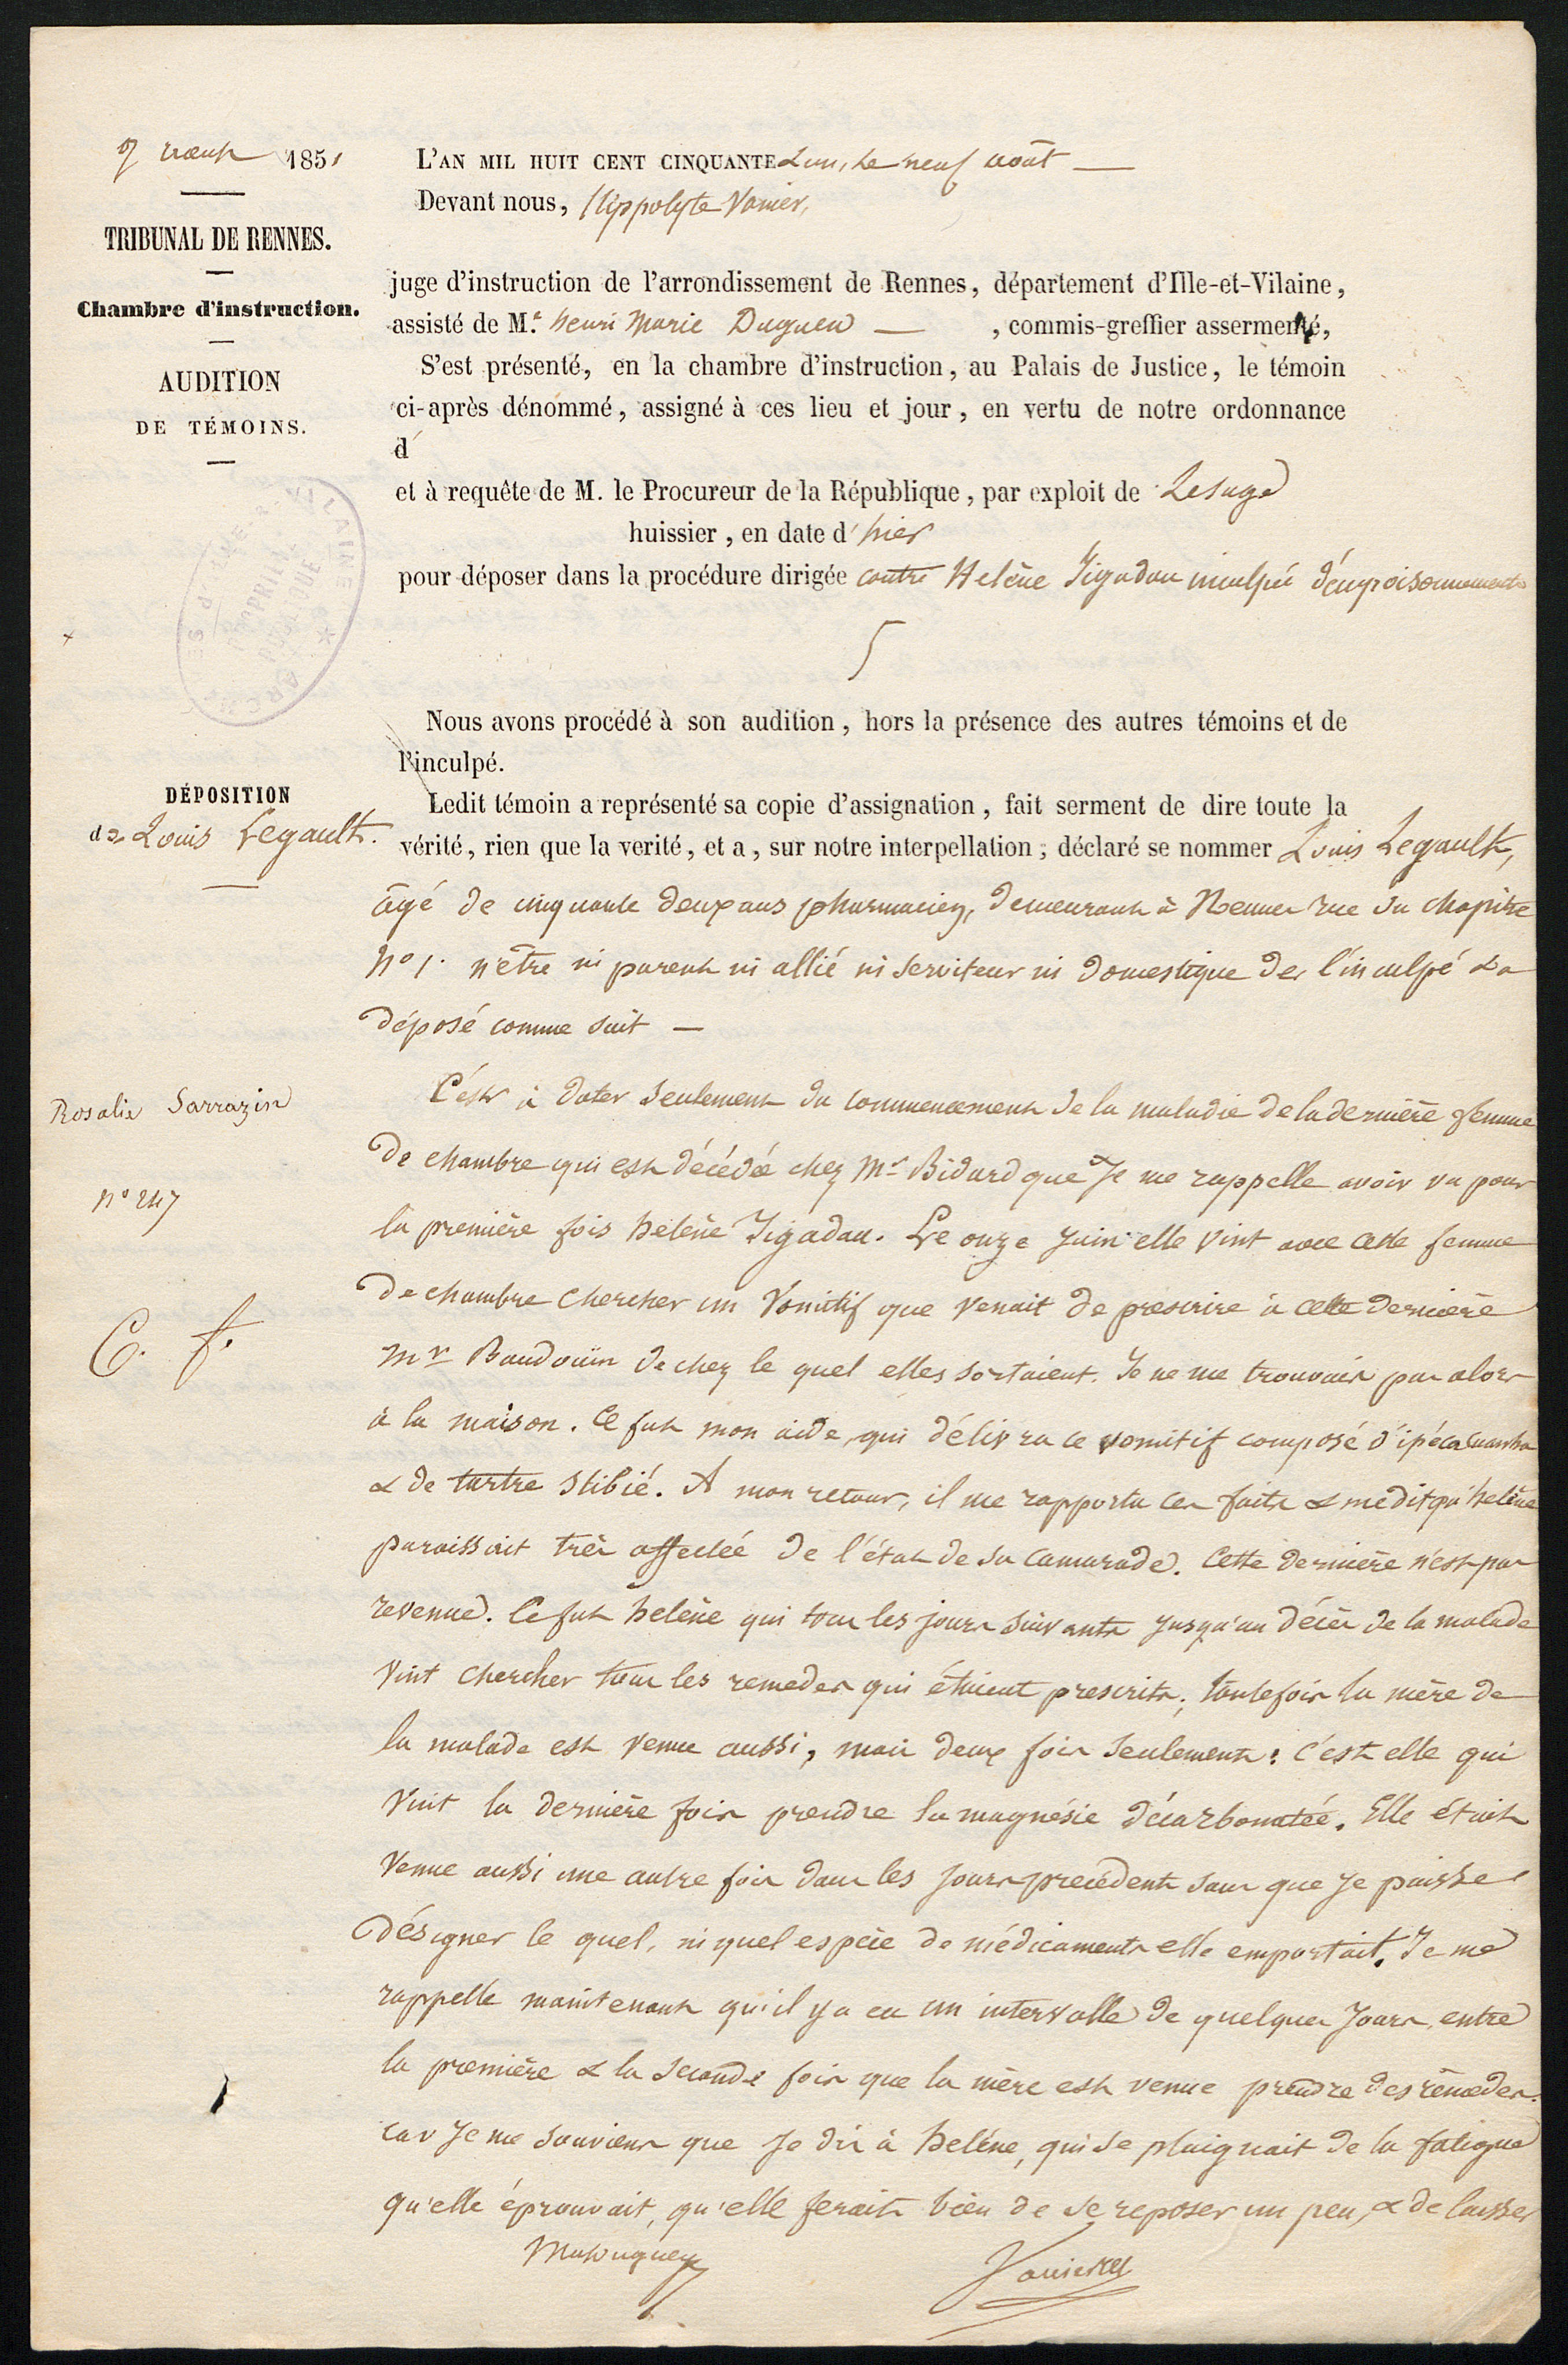 9 août 1851
TRIBUNAL DE RENNES.
Chambre d'instruction.
AUDITION
DE TÉMOINS.
L'AN MIL HUIT CENT CINQUANTE & un, le neuf août
Devant nous, Hippolyte Vanier,
juge d'instruction de l'arrondissement de Rennes, département d'Ille-et-Vilaine,
assisté de M.e henri Marie Duguen, commis-greffier assermenté,
S'est présenté, en la chambre d'instruction, au Palais de Justice, le témoin
ci-après dénommé, assigné à ces lieu et jour, en vertu de notre ordonnance
d'
et à requête de M. le Procureur de la République, par exploit de Lesage
huissier, en date d'hier
pour déposer dans la procédure dirigée contre Helène Jigadau inculpée d'empoisonnements
Nous avons procédé à son audition, hors la présence des autres témoins et de
l'inculpé.
DÉPOSITION
de Louis Legault.
Ledit témoin a représenté sa copie d'assignation, fait serment de dire toute la
vérité, rien que la verité, et a, sur notre interpellation, déclaré se nommer Louis Legault,
âgé de cinquante deux ans pharmacien, demeurant à Rennes rue du chapitre
No 1. n'être ni parent ni allié ni serviteur ni domestique de l'inculpé & a
déposé comme suit —
Rosalie Sarrazin
no 247
C. f.
C'est à dater seulement du commencement de la maladie de la dernière femme
de chambre qui est décédée chez Mr Bidard que Je me rappelle avoir vu pour
la première fois hélène Jigadau. Le onze Juin elle vint avec cette femme
de chambre chercher un vomitif que venait de prescrire à cette dernière
Mr Baudouin de chez le quel elles sortaient. Je ne me trouvais pas alors
à la maison. Ce fut mon aide, qui délivra ce vomitif composé d'ipécacuanha
& de tartre stibié. A mon retour, il me rapporta ces faits & me dit qu'helène
paraissait très affectée de l'état de sa camarade. Cette dernière n'est pas
revenue. Ce fut helène qui tous les jours suivants jusqu'au décès de la malade
vint chercher tous les remedes qui étaient prescrits; toutefois la mère de
la malade est venue aussi, mais deux fois seulement: c'est elle qui
vint la dernière fois prendre la magnésie décarbonatée. Elle était
venue aussi une autre fois dans les jours precédents sans que Je puisse
désigner le quel, ni quel espèce de médicaments elle emportait. Je me
rappelle maintenant qu'il y a eu un intervalle de quelques Jours, entre
la première & la seconde fois que la mère est venue prendre des remèdes.
car Je me souviens que Je dis à helène, qui se plaignait de la fatigue
qu'elle éprouvait, qu'elle ferait bien de se reposer un peu, & de laisser
Vanier